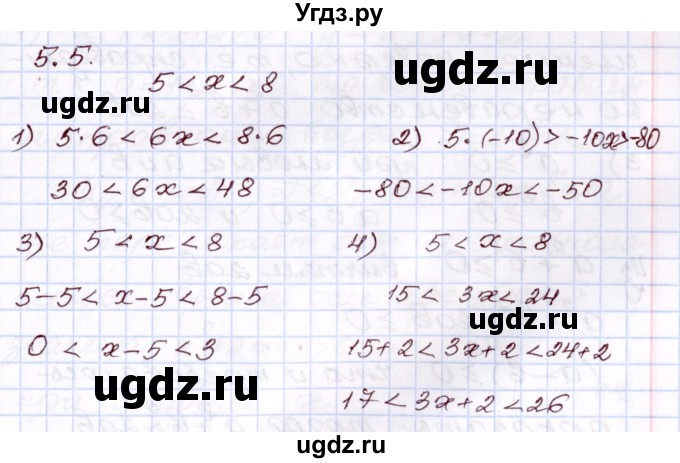 Угдз.ру
5.5.
5 < x < 8
ugdz.ru
ugdz.ru
1) 5·6 < 6x < 8·6
2) 5·(-10) > -10x > -80
30 < 6x < 48
-80 < -10x < -50
3) 5 < x < 8
4) 5 < x < 8
5-5 < x-5 < 8-5
15 < 3x < 24
ugdz.ru
0 < x-5 < 3
15+2 < 3x+2 < 24+2
ugdz.ru
17 < 3x+2 < 26
ugdz.ru